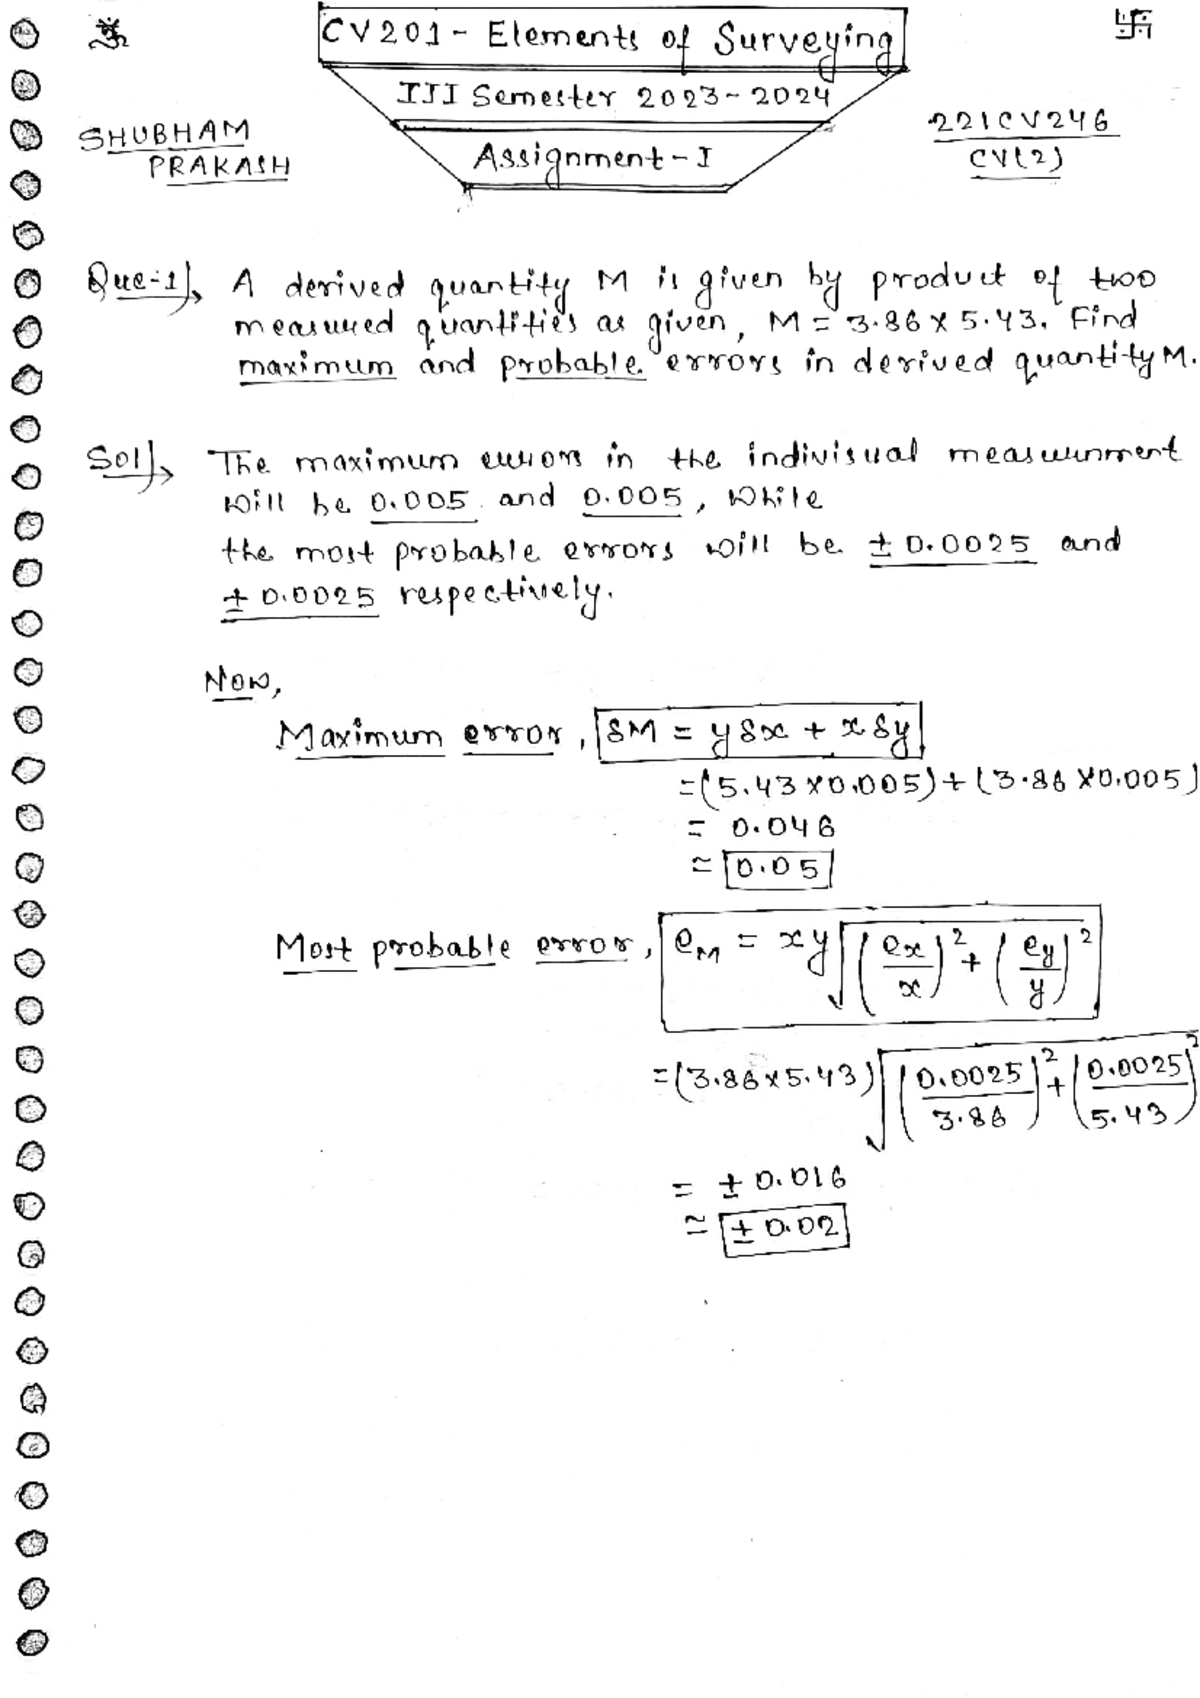 ॐ
卐
CV201 - Elements of Surveying
III Semester 2023-2024
Assignment-I
SHUBHAM
PRAKASH
221CV246
CV(2)
Que-1) → A derived quantity M is given by product of two
measured quantities as given, M = 3.86 × 5.43. Find
maximum and probable errors in derived quantity M.
Sol) → The maximum errors in the indivisual measurement
will be 0.005 and 0.005, While
the most probable errors will be ± 0.0025 and
± 0.0025 respectively.
Now,
Maximum error, δM = yδx + xδy
= (5.43 × 0.005) + (3.86 × 0.005)
= 0.046
≃ 0.05
Most probable error, e_M = xy √((ex/x)² + (ey/y)²)
= (3.86 × 5.43) √((0.0025/3.86)² + (0.0025/5.43)²)
= ± 0.016
≃ ± 0.02